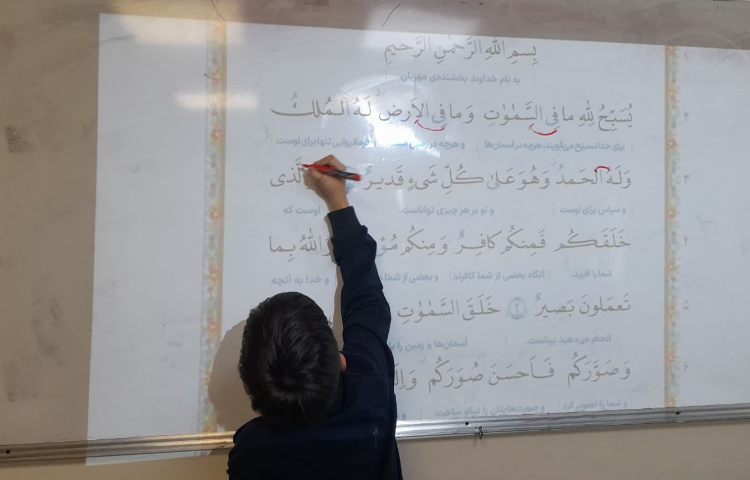 بِسمِ اللّٰهِ الرَّحمٰنِ الرَّحیمِ
به نام خداوند بخشنده‌ی مهربان
١
یُسَبِّحُ لِلّٰهِ ما فِی السَّمٰوٰتِ وَ ما فِی الاَرضِ لَهُ المُلكُ
٢
برای خدا تسبیح می‌گویند، هرچه در آسمان‌ها و هرچه در فرمانروایی تنها برای اوست
وَ لَهُ الحَمدُ وَ هُوَ عَلیٰ كُلِّ شَیءٍ قَدیرٌ لَّذی
٣
و سپاس برای اوست و او بر هر چیزی تواناست. اوست که
خَلَقَكُم فَمِنكُم كافِرٌ وَ مِنكُم وَ اللّٰهُ بِما
۴
شما را آفرید. آنگاه بعضی از شما کافرند و بعضی از شما و خدا به آنچه
تَعمَلونَ بَصیرٌ ٢ خَلَقَ السَّمٰوٰتِ
۵
انجام می‌دهید بیناست. آسمان‌ها و زمین را
وَ صَوَّرَكُم فَاَحسَنَ صُوَرَكُم
۶
و شما را تصویر کرد و صورت‌هایتان را نیکو ساخت